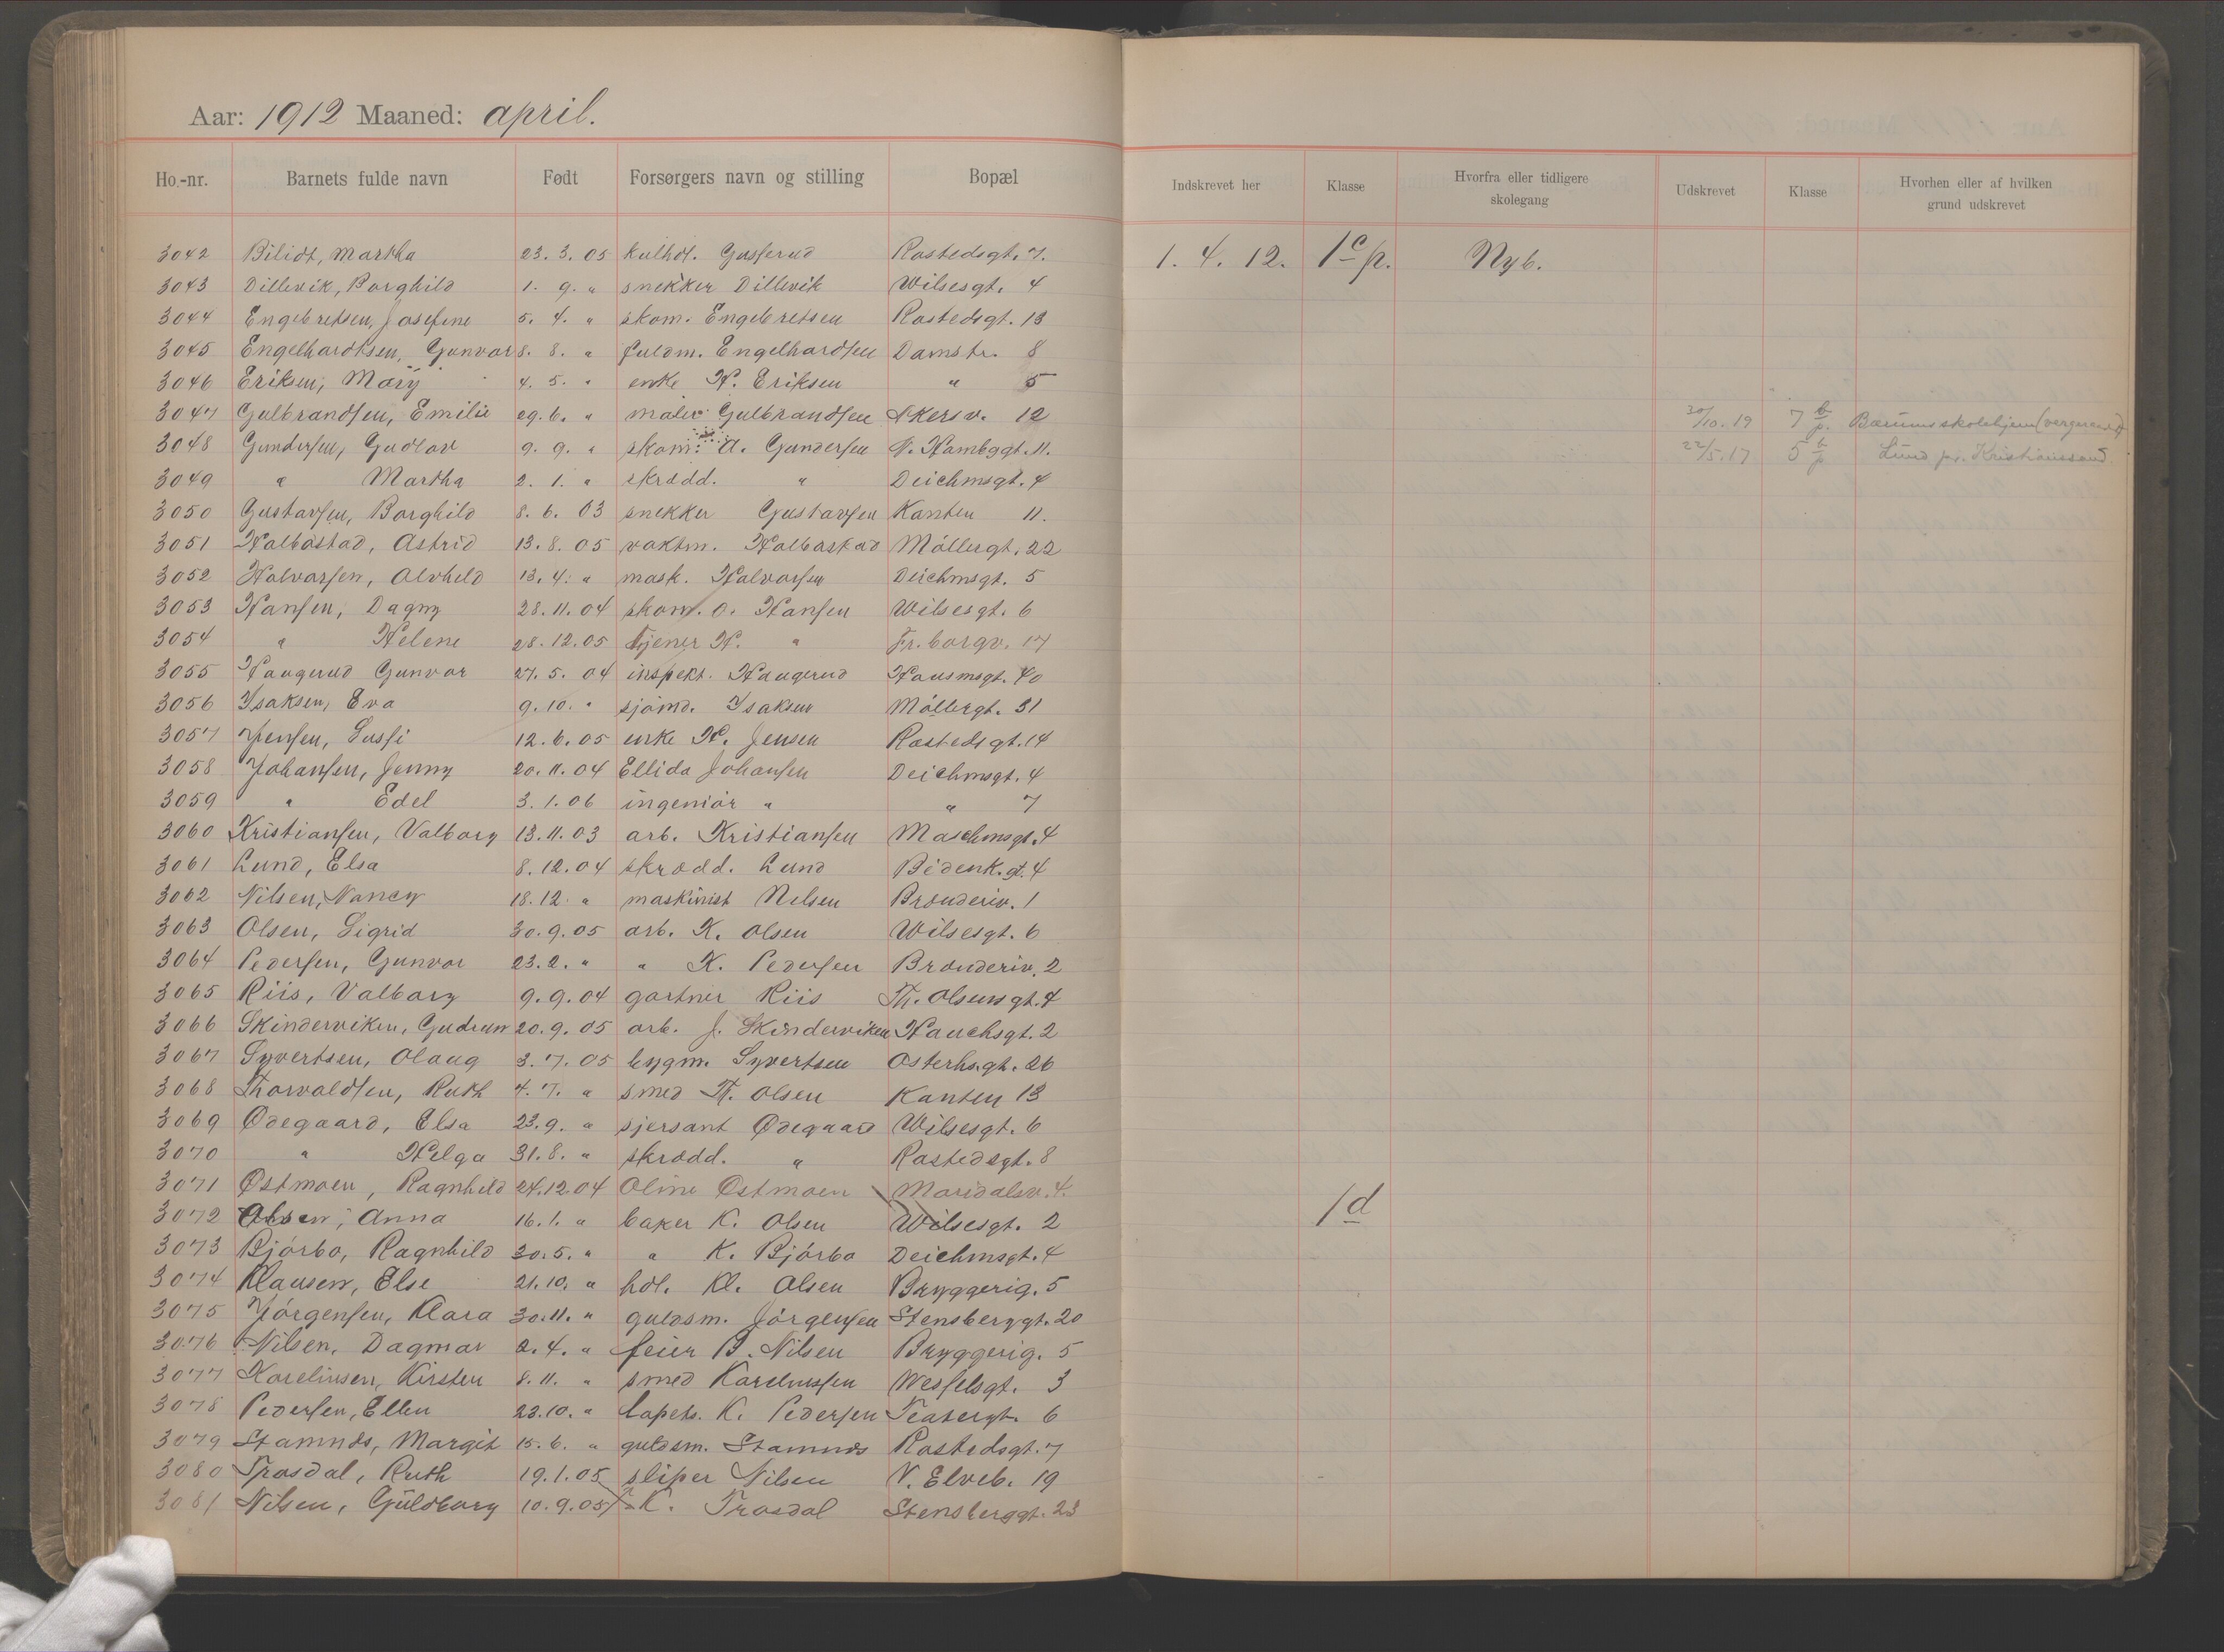 Aar: 1912 Maaned: april.
Ho.-nr. Barnets fulde navn Født Forsørgers navn og stilling Bopæl
Indskrevet her Klasse Hvorfra eller tidligere skolegang Udskrevet Klasse Hvorhen eller af hvilken grund udskrevet
3042 Bilidt, Martha 23. 3. 05 kulhdl. Gusserud Rostedsgt. 7. 1. 4. 12. 1c p. Nyb.
3043 Dillevik, Borghild 1. 9. " snekker Dillevik Wilsesgt. 4
3044 Engebretsen, Josefine 5. 4. " skom. Engebretsen Rostedsgt. 13
3045 Engelhardtsen, Gunvor 8. 8. " fuldm. Engelhardsen Damstr. 8
3046 Eriksen, Mary 4. 5. " enke H. Eriksen " 5
3047 Gulbrandsen, Emilie 29. 6. " maler Gulbrandsen Akersv. 12 30/10. 19 7 b p. Bærums skolehjem
3048 Gundersen, Gudlov 9. 9. " skom. A. Gundersen N. Hambggt. 11. 22/5. 17 5 b p Lund pr. Kristianssand
3049 " Martha 2. 1. " skrædd. " Deichmsgt. 4
3050 Gustavsen, Borghild 8. 6. 03 snekker Gustavsen Kanten 11.
3051 Halbostad, Astrid 13. 8. 05 vaktm. Halbostad Möllergt. 22
3052 Halvorsen, Alvhild 13. 4. " mask. Halvorsen Deichmsgt. 5
3053 Hansen, Dagny 28. 11. 04 skom. O. Hansen Wilsesgt. 6
3054 " Helene 28. 12. 05 tjener H. " Fr. borgv. 17
3055 Haugerud Gunvor 27. 5. 04 inspekt. Haugerud Hausmsgt. 40
3056 Isaksen, Eva 9. 10. " sjömd. Isaksen Möllergt. 31
3057 Jensen, Sussi 12. 6. 05 enke H. Jensen Rostedsgt. 14
3058 Johansen, Jenny 20. 11. 04 Ellida Johansen Deichmsgt. 4
3059 " Edel 3. 1. 06 ingeniör " " 7
3060 Kristiansen, Valborg 13. 11. 03 arb. Kristiansen Maschmsgt. 4
3061 Lund, Elsa 8. 12. 04 skrædd. Lund Bidenk. gt. 4
3062 Nilsen, Nancy 18. 12. " maskinist Nilsen Brænderiv. 1
3063 Olsen, Sigrid 30. 9. 05 arb. K. Olsen Wilsesgt. 6
3064 Pedersen, Gunvor 23. 2. " " K. Pedersen Brænderiv. 2
3065 Riis, Valborg 9. 9. 04 gartner Riis Th. Olsens gt. 4
3066 Skinderviken, Gudrun 20. 9. 05 arb. J. Skinderviken Hauchsgt. 2
3067 Syvertsen, Olaug 3. 7. 05 bygm. Syvertsen Osterhs. gt. 26
3068 Thorvaldsen, Ruth 4. 7. " smed Th. Olsen Kanten 13
3069 Ødegaard, Elsa 23. 9. " sjersant Ødegaard Wilsesgt. 6
3070 " Helga 31. 8. " skrædd. " Rostedsgt. 8
3071 Østmoen, Ragnhild 24. 12. 04 Oline Østmoen Maridalsv. 4.
3072 Olsen, Anna 16. 1. " baker K. Olsen Wilsesgt. 2 1d
3073 Bjórbo, Ragnhild 30. 5. " " K. Bjórbo Deichmsgt. 4
3074 Klausen, Else 21. 10. " hdl. Kl. Olsen Bryggerig. 5
3075 Jórgensen, Klara 30. 11. " guldsm. Jórgensen Stensberggt. 20
3076 Nilsen, Dagmar 2. 4. " feier B. Nilsen Bryggerig. 5
3077 Karelinsen, Kirsten 8. 11. " smed Karelinssen Wesselsgt. 3
3078 Pedersen, Ellen 23. 10. " tapets. K. Pedersen Teatergt. 6
3079 Stamnds, Margit 15. 6. " guldsm. Stamnds Rostedsgt. 7
3080 Trosdal, Ruth 19. 1. 05 sliper Nilsen N. Elveb. 19
3081 Nilsen, Guldborg 10. 9. 05 K. Trosdal Stensberggt. 23